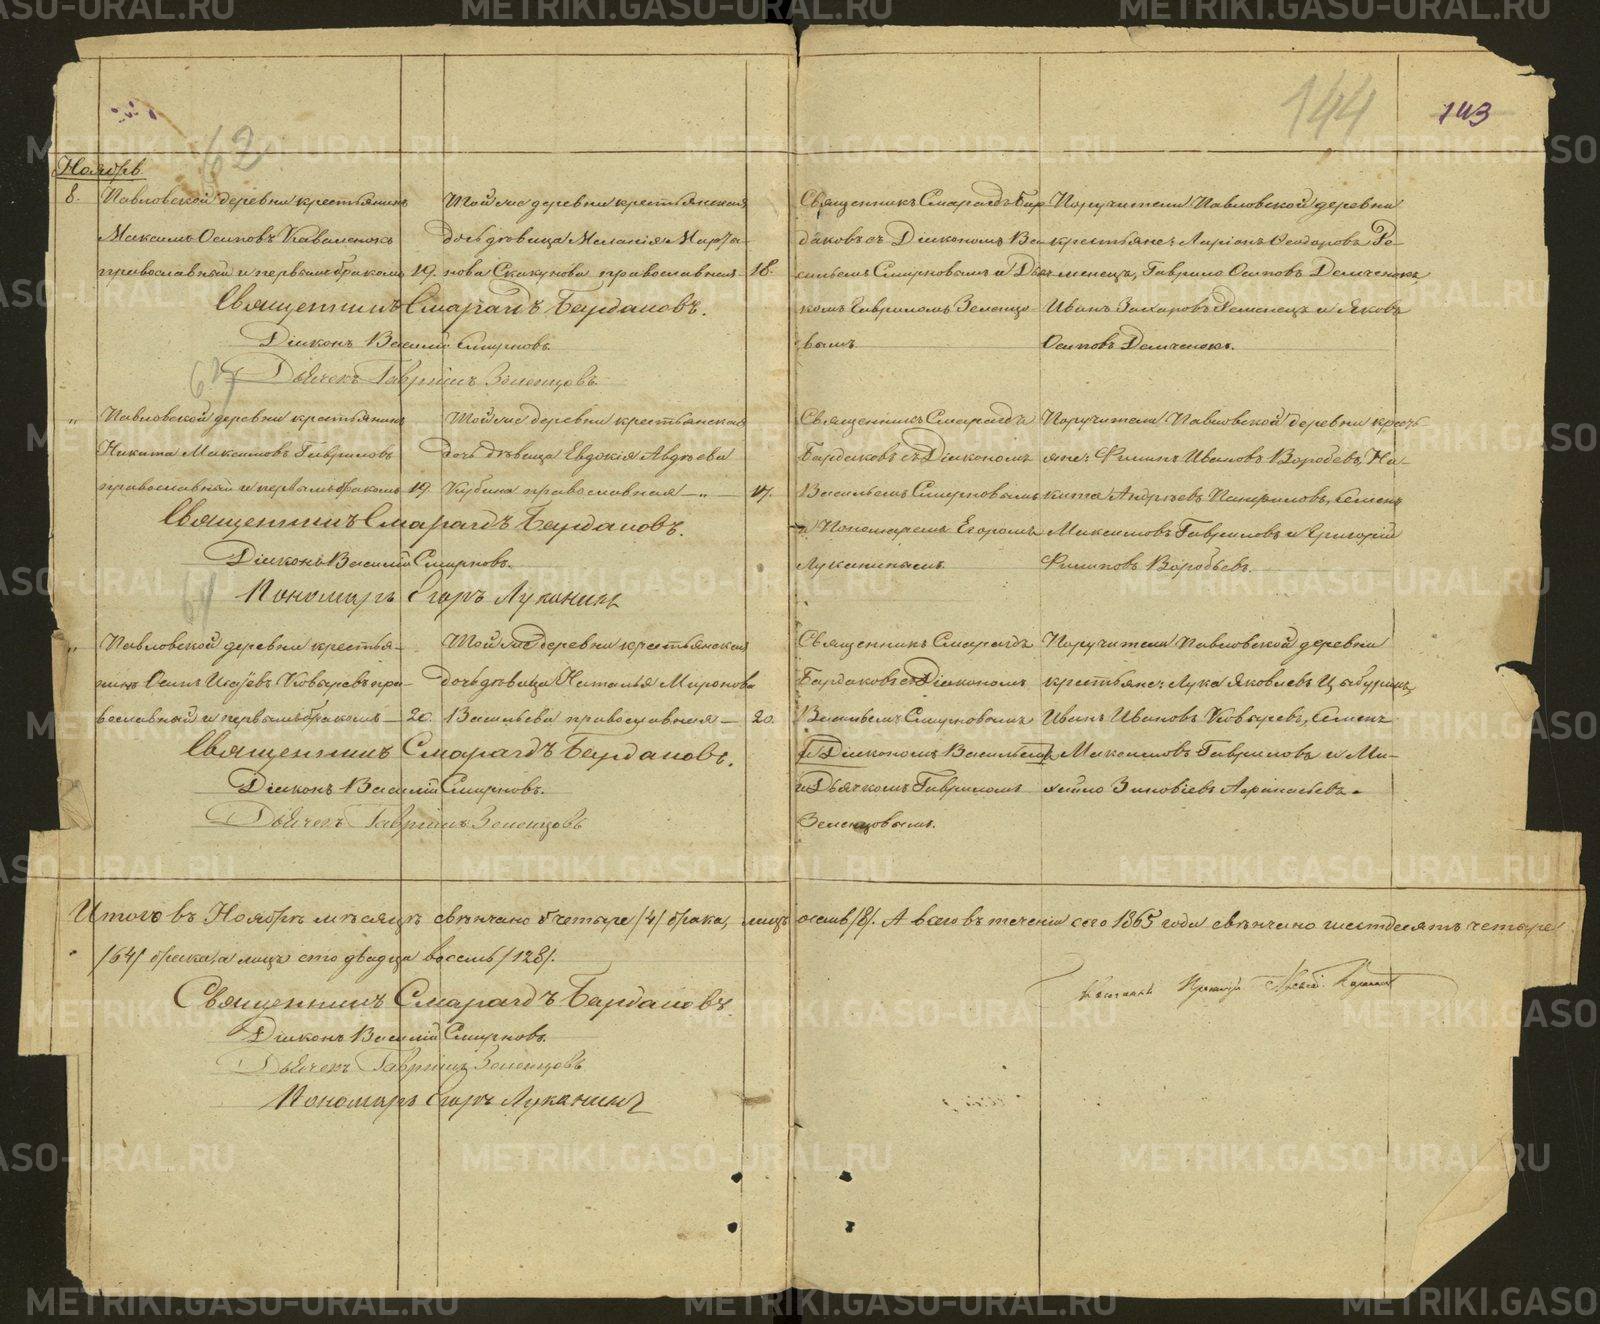 144
143
62
Ноябрь
8. Павловской деревни крестьянинъ
Максимъ Осиповъ Коваленокъ
православный и первымъ бракомъ 19.
Той же деревни крестьянская
дочь девица Меланія Марта-
нова Скакунова православная 18.
Священникъ Смарагдъ Бар-
даковъ съ Діакономъ Ва-
сильемъ Смирновымъ и Дьяч-
комъ Гавриломъ Зеленцо-
вымъ
Поручители Павловской деревни
крестьяне: Ларіонъ Ѳеодоровъ Ре-
менецъ, Гаврило Осиповъ Демченокъ,
Иванъ Захаровъ Ременецъ и Яковъ
Осиповъ Демченокъ.
Священникъ Смарагдъ Бардаковъ.
Діаконъ Василій Смирновъ.
Дьячекъ Гавріилъ Зеленцовъ
63
„ Павловской деревни крестьянинъ
Никита Максимовъ Гавриловъ
православный и первымъ бракомъ 19.
Той же деревни крестьянская
дочь девица Евдокія Авдеева
Кубина православная — „ — 17.
Священникъ Смарагдъ
Бардаковъ съ Діакономъ
Васильемъ Смирновымъ
и Пономаремъ Егоромъ
Луканинымъ.
Поручители Павловской деревни кресть-
яне: Филипъ Ивановъ Воробьевъ, Ни-
кита Андреевъ Панфиловъ, Семенъ
Максимовъ Гавриловъ и Григорій
Филиповъ Воробьевъ.
Священникъ Смарагдъ Бардаковъ.
Діаконъ Василій Смирновъ.
Пономарь Егоръ Луканинъ
64
„ Павловской деревни крестья-
нинъ Осипъ Ковыревъ пра-
вославный и первымъ бракомъ — 20.
Той же деревни крестьянская
дочь девица Наталья Миронова
Васильева православная — 20.
Священникъ Смарагдъ
Бардаковъ съ Діакономъ
Васильемъ Смирновымъ
и Діакономъ Васильемъ
и Дьячкомъ Гавриломъ
Зеленцовымъ.
Поручители Павловской деревни
крестьяне: Лука Яковлевъ Цыбуринъ,
Иванъ Ивановъ Ковыревъ, Семенъ
Максимовъ Гавриловъ и Ми-
хайло Зиновіевъ Аѳанасьевъ.
Священникъ Смарагдъ Бардаковъ.
Діаконъ Василій Смирновъ.
Дьячекъ Гавріилъ Зеленцовъ
Итого въ Ноябрѣ мѣсяцѣ свѣнчано четыре /4/ брака, лицъ осемь /8/. А всего въ теченіи сего 1865 года свѣнчано шестдесятъ четыре
/64/ брака, а лицъ сто двадца восемь /128/.
Священникъ Смарагдъ Бардаковъ.
Діаконъ Василій Смирновъ.
Дьячекъ Гавріилъ Зеленцовъ
Пономарь Егоръ Луканинъ
METRIKI.GASO-URAL.RU